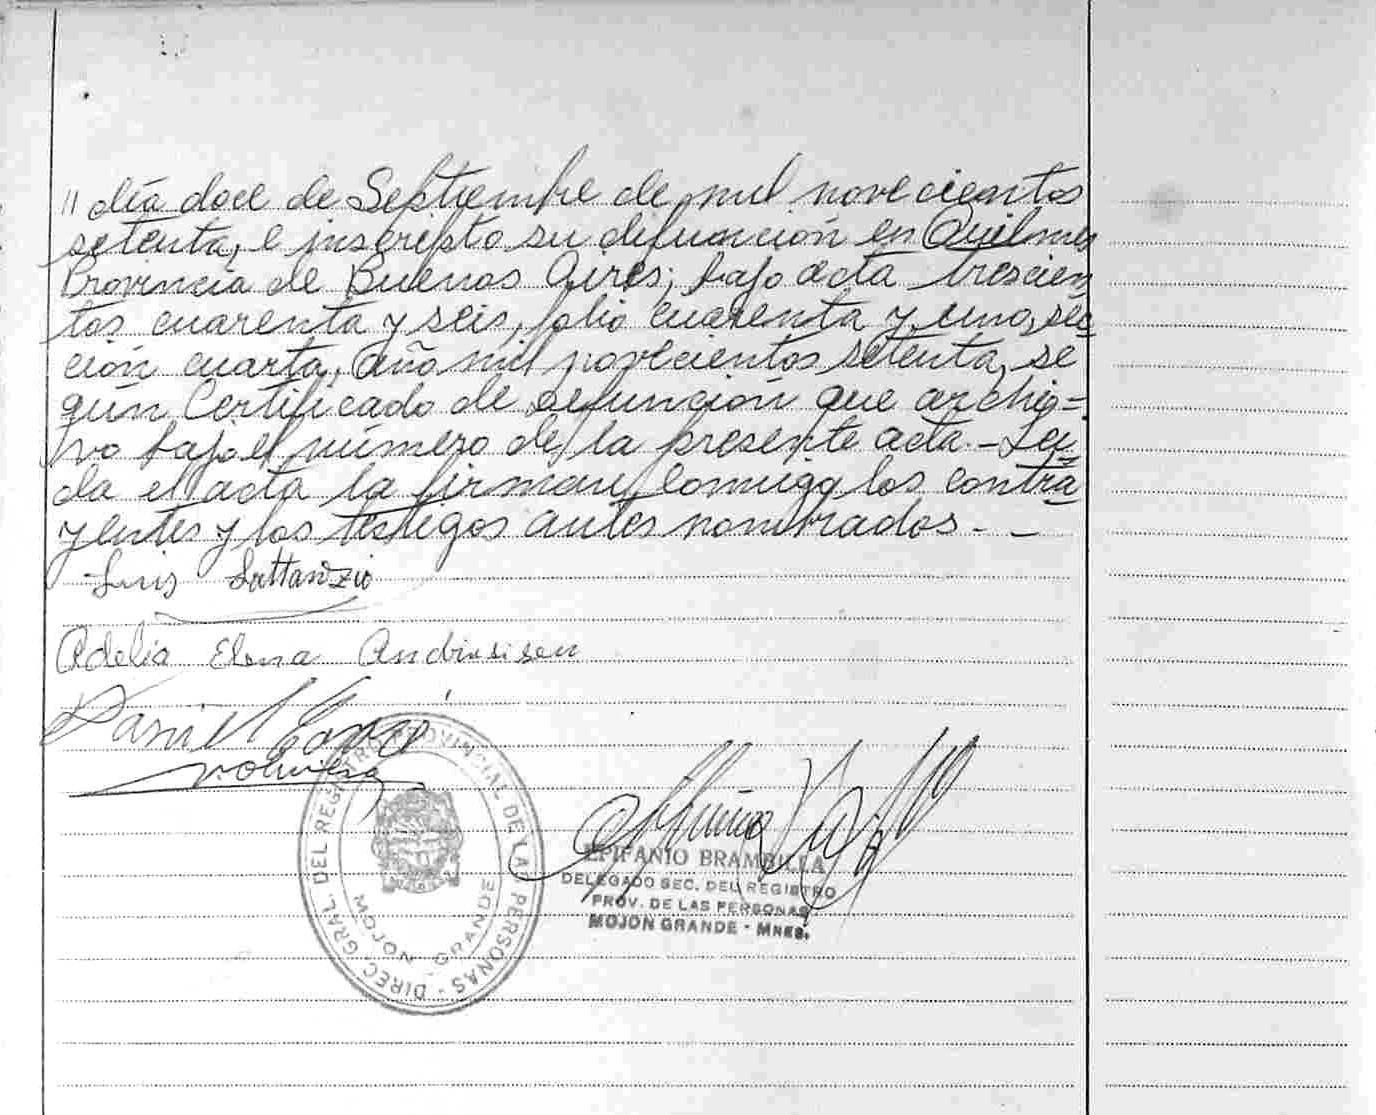 " día doce de Septiembre de mil novecientos
setenta, e inscripto su difunción en Quilmes
Provincia de Buenos Aires; bajo acta trescien
tos cuarenta y seis, folio cuarenta y uno, sec
ción cuarta, año mil novecientos setenta, se
gún Certificado de defunción que archi-
vo bajo el número de la presente acta.- Leí
da el acta la firman conmigo los contra
yentes y los testigos antes nombrados. - -
Luis Lattanzio
Adelia Elena
Daniel
DIREC. GRAL. DEL REGISTRO PROVINCIAL DE LA PERSONAS -
MOJON GRANDE
EPIFANIO BRAMBILLA
DELEGADO SEC. DEL REGISTRO
PROV. DE LAS PERSONAS
MOJON GRANDE - MNES.